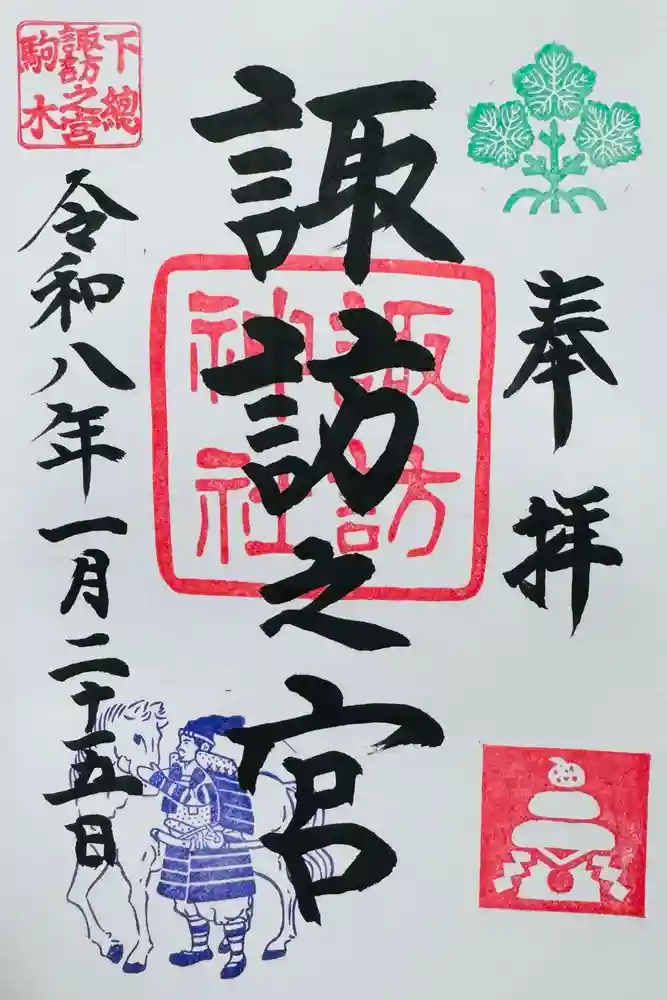 奉拝
諏訪之宮
諏訪
神社
令和八年一月二十五日
下總
諏訪之宮
駒木